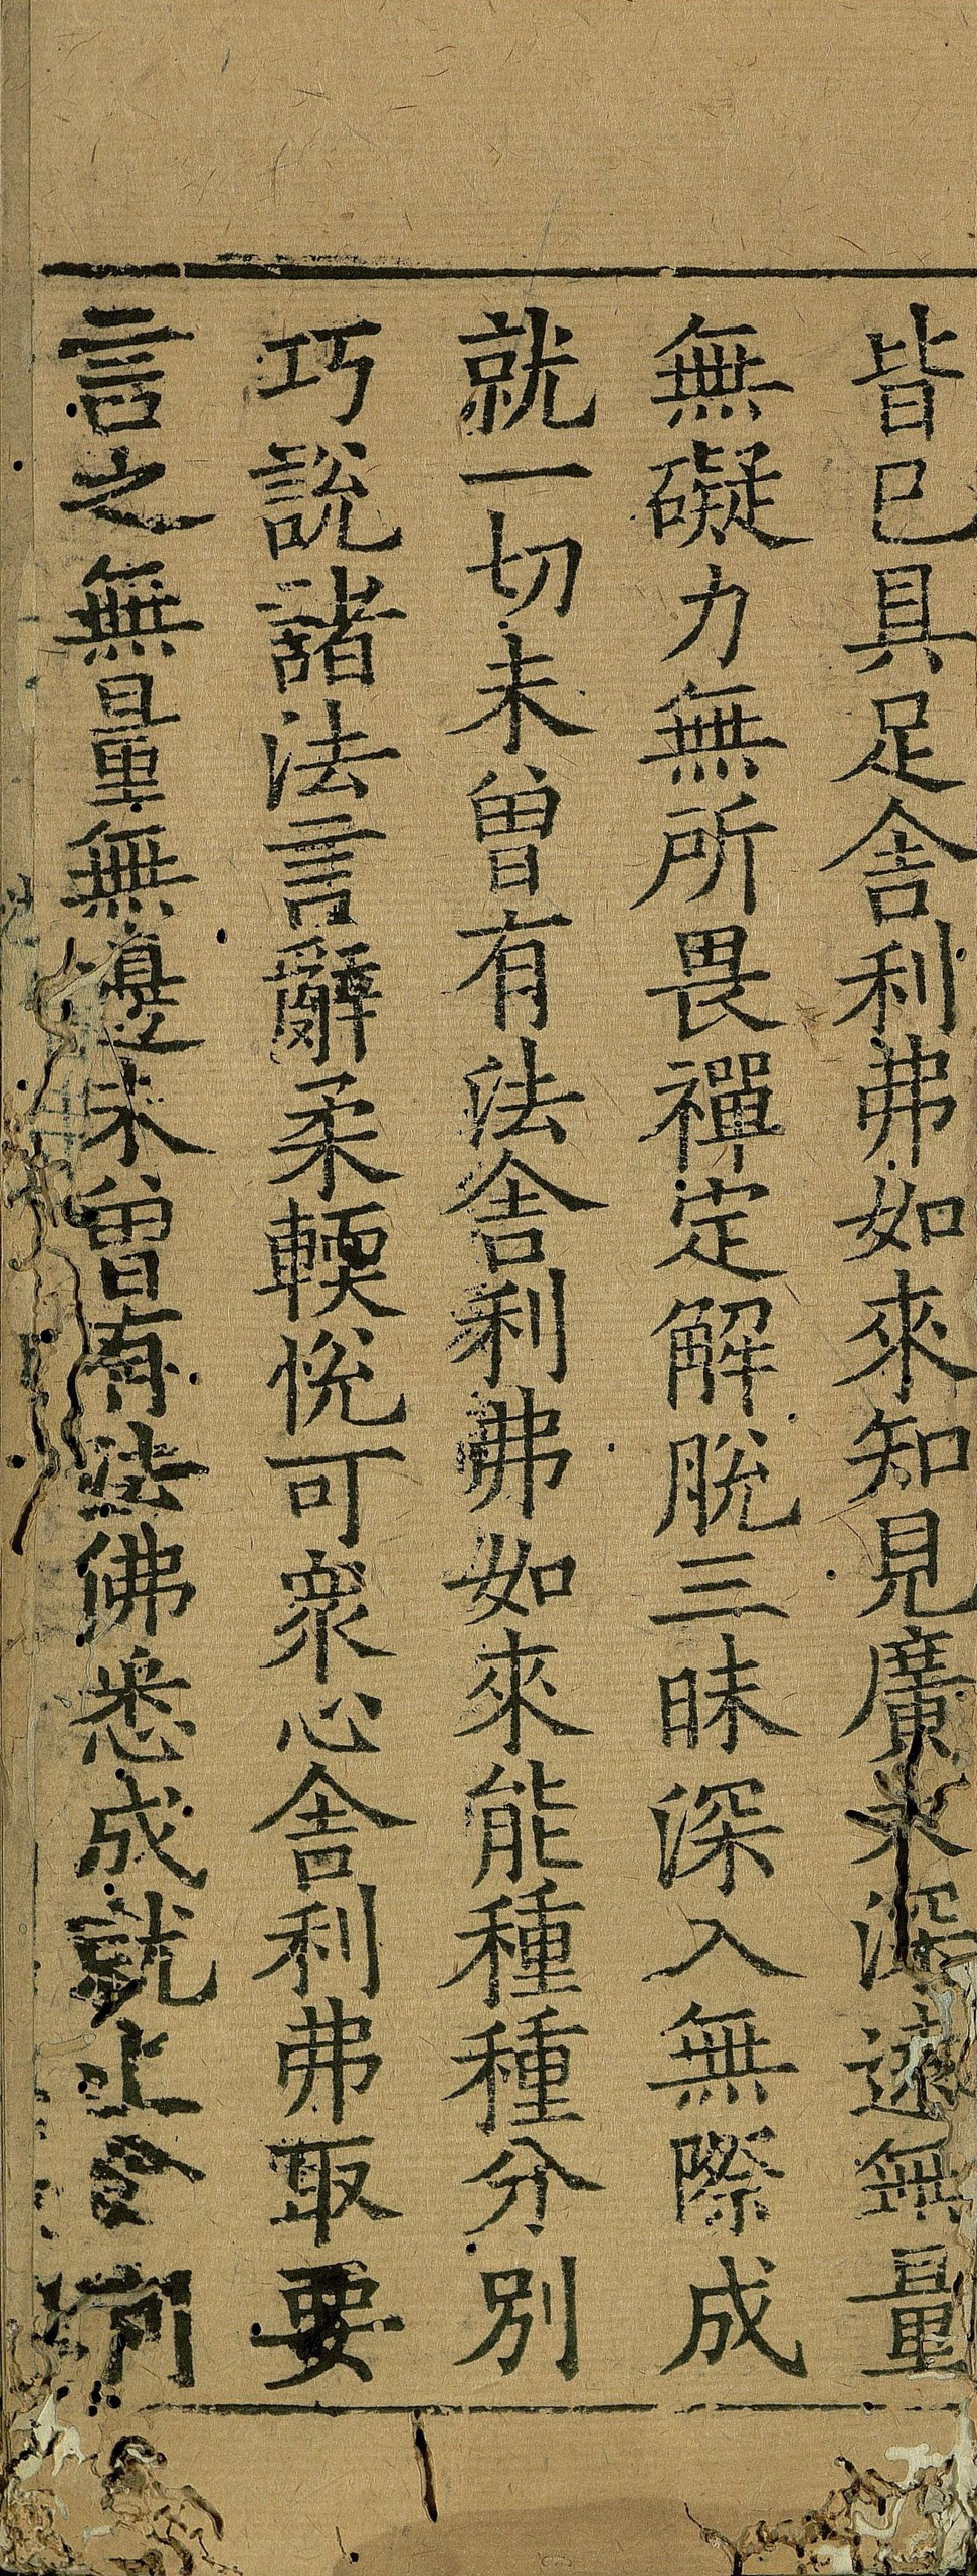 皆已具足舍利弗如來知見廣大深遠無量
無礙力無所畏禪定解脫三昧深入無際成
就一切未曾有法舍利弗如來能種種分別
巧說諸法言辭柔輭悅可衆心舍利弗取要
言之無量無邊未曾有法佛悉成就止舍利